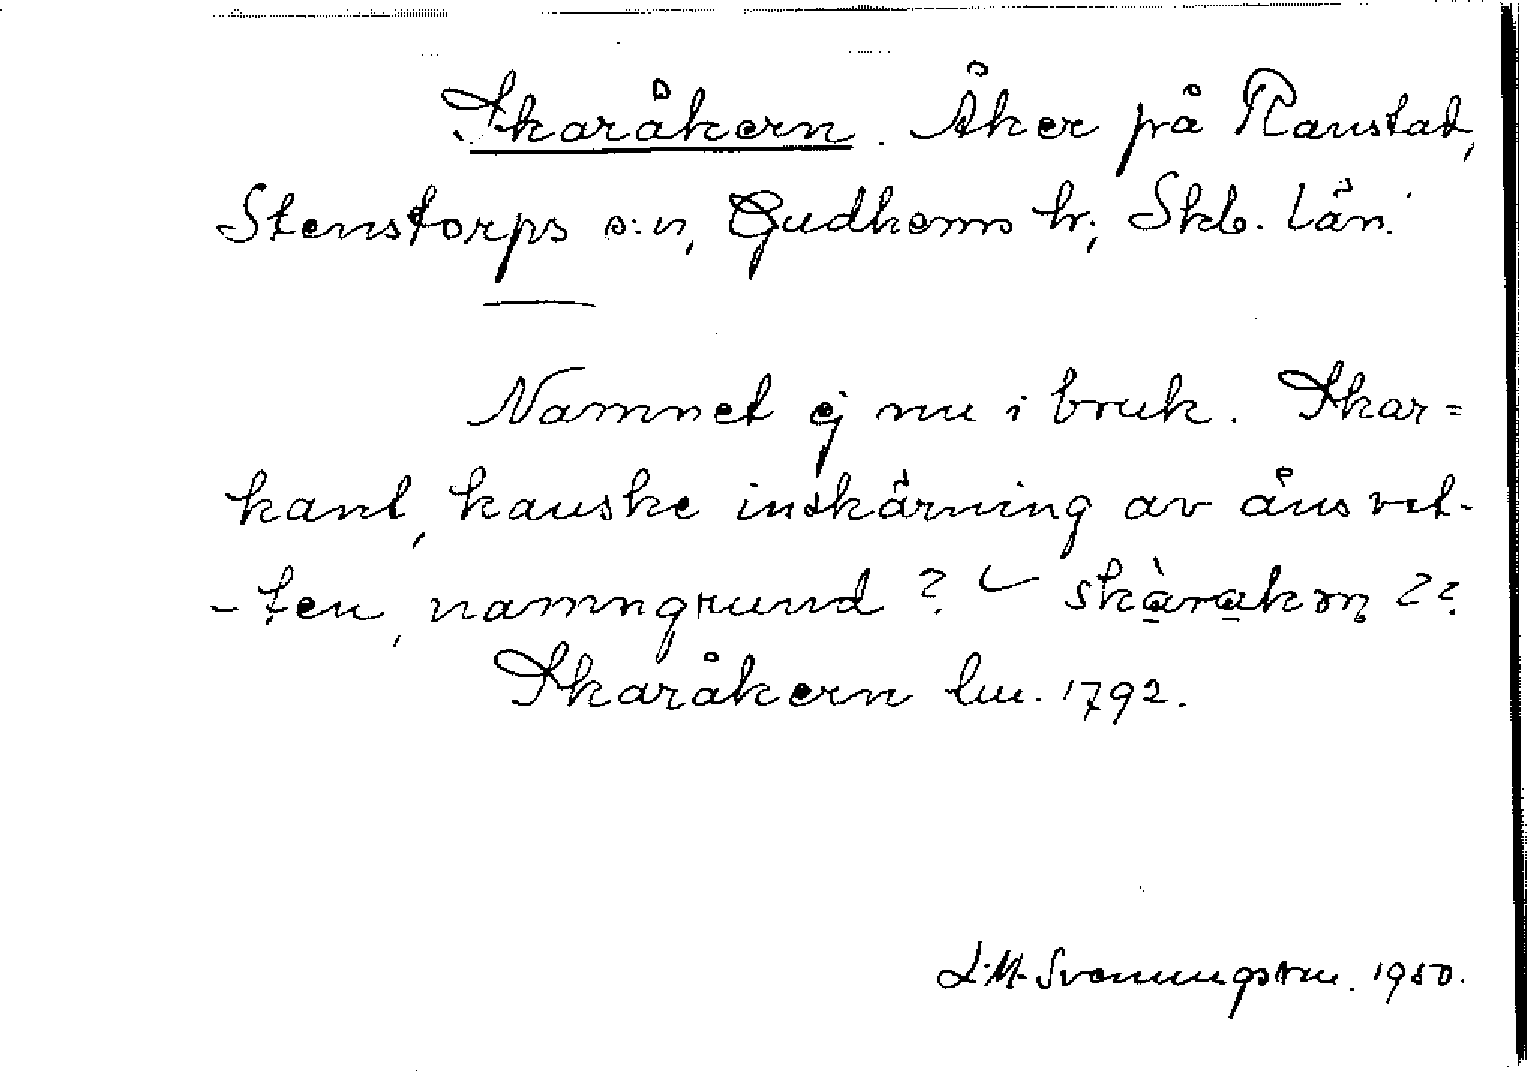 Skaråkern. Åker på Ranstad,
Stenstorps s:n, Gudhems hr; Skb. län.
Namnet ej nu i bruk. Skar=
kant, kanske inskärning av åns vat-
-ten, namngrund? skàrakɷn ??
Skaråkern lm. 1792.
L.M. Svenungsson. 1950.